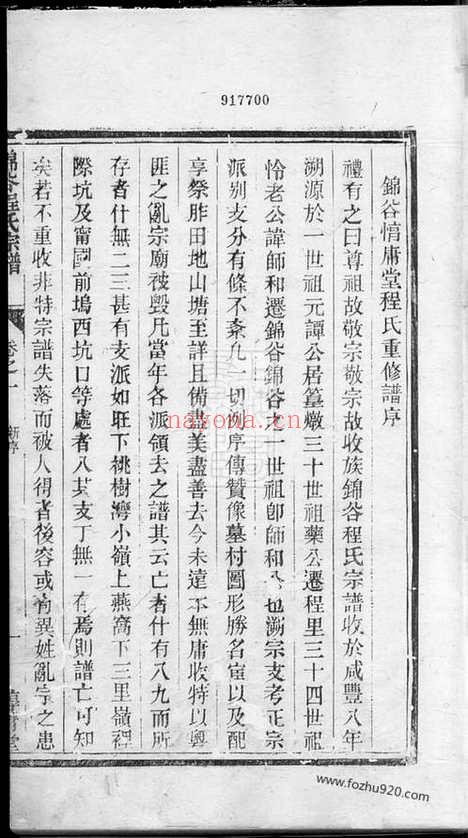 917700
錦谷惰庸堂程氏重修譜序
禮有之曰尊祖故敬宗敬宗故收族錦谷程氏宗譜收於咸豐八年
溯源於一世祖元譚公居篁墩三十世祖藥公遷程里三十四世祖
怜老公諱師和遷錦谷錦谷之一世祖卽師和公也溯宗支考正宗
派別支分有條不紊凡一切例序傳贊像墓村圖形勝名宦以及配
享祭胙田地山塘至詳且備盡美盡善去今未遠不無庸收特以粵
匪之亂宗廟被毀凡當年各派領去之譜其云亡者什有八九而所
存者什無二三甚有支派如旺下桃樹灣小嶺上燕窩下三里嶺裡
際坑及甯國前塢西坑口等處者八其支丁無一有焉則譜亡可知
矣若不重收非特宗譜失落而被人得者後容或有異姓亂宗之患
錦谷程氏宗譜
卷之一
新序
一
nayona.cn
www.fozhu920.com